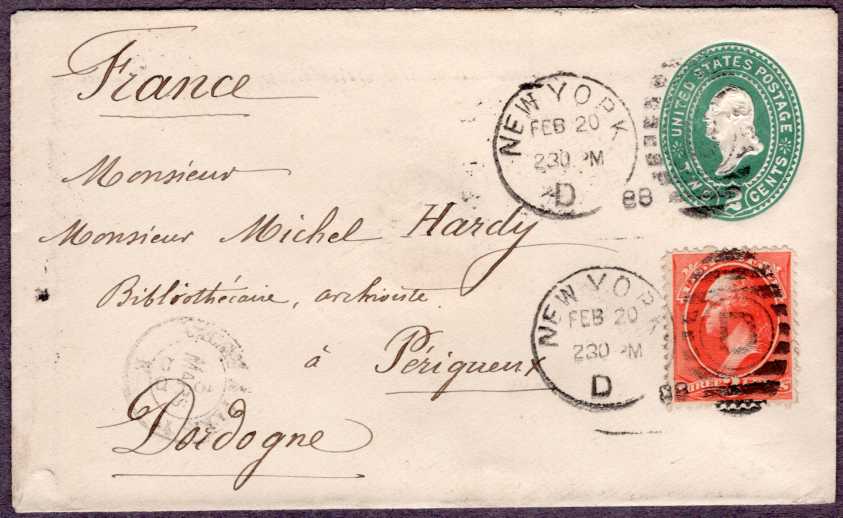 France
Monsieur
Monsieur Michel Hardy
Bibliothécaire, archiviste.
à Périgueux
Dordogne
NEW YORK
FEB 20
230 PM
D
88
UNITED STATES POSTAGE
TWO CENTS
2
NEW YORK
FEB 20
230 PM
D
88
THREE 3 CENTS
MARS